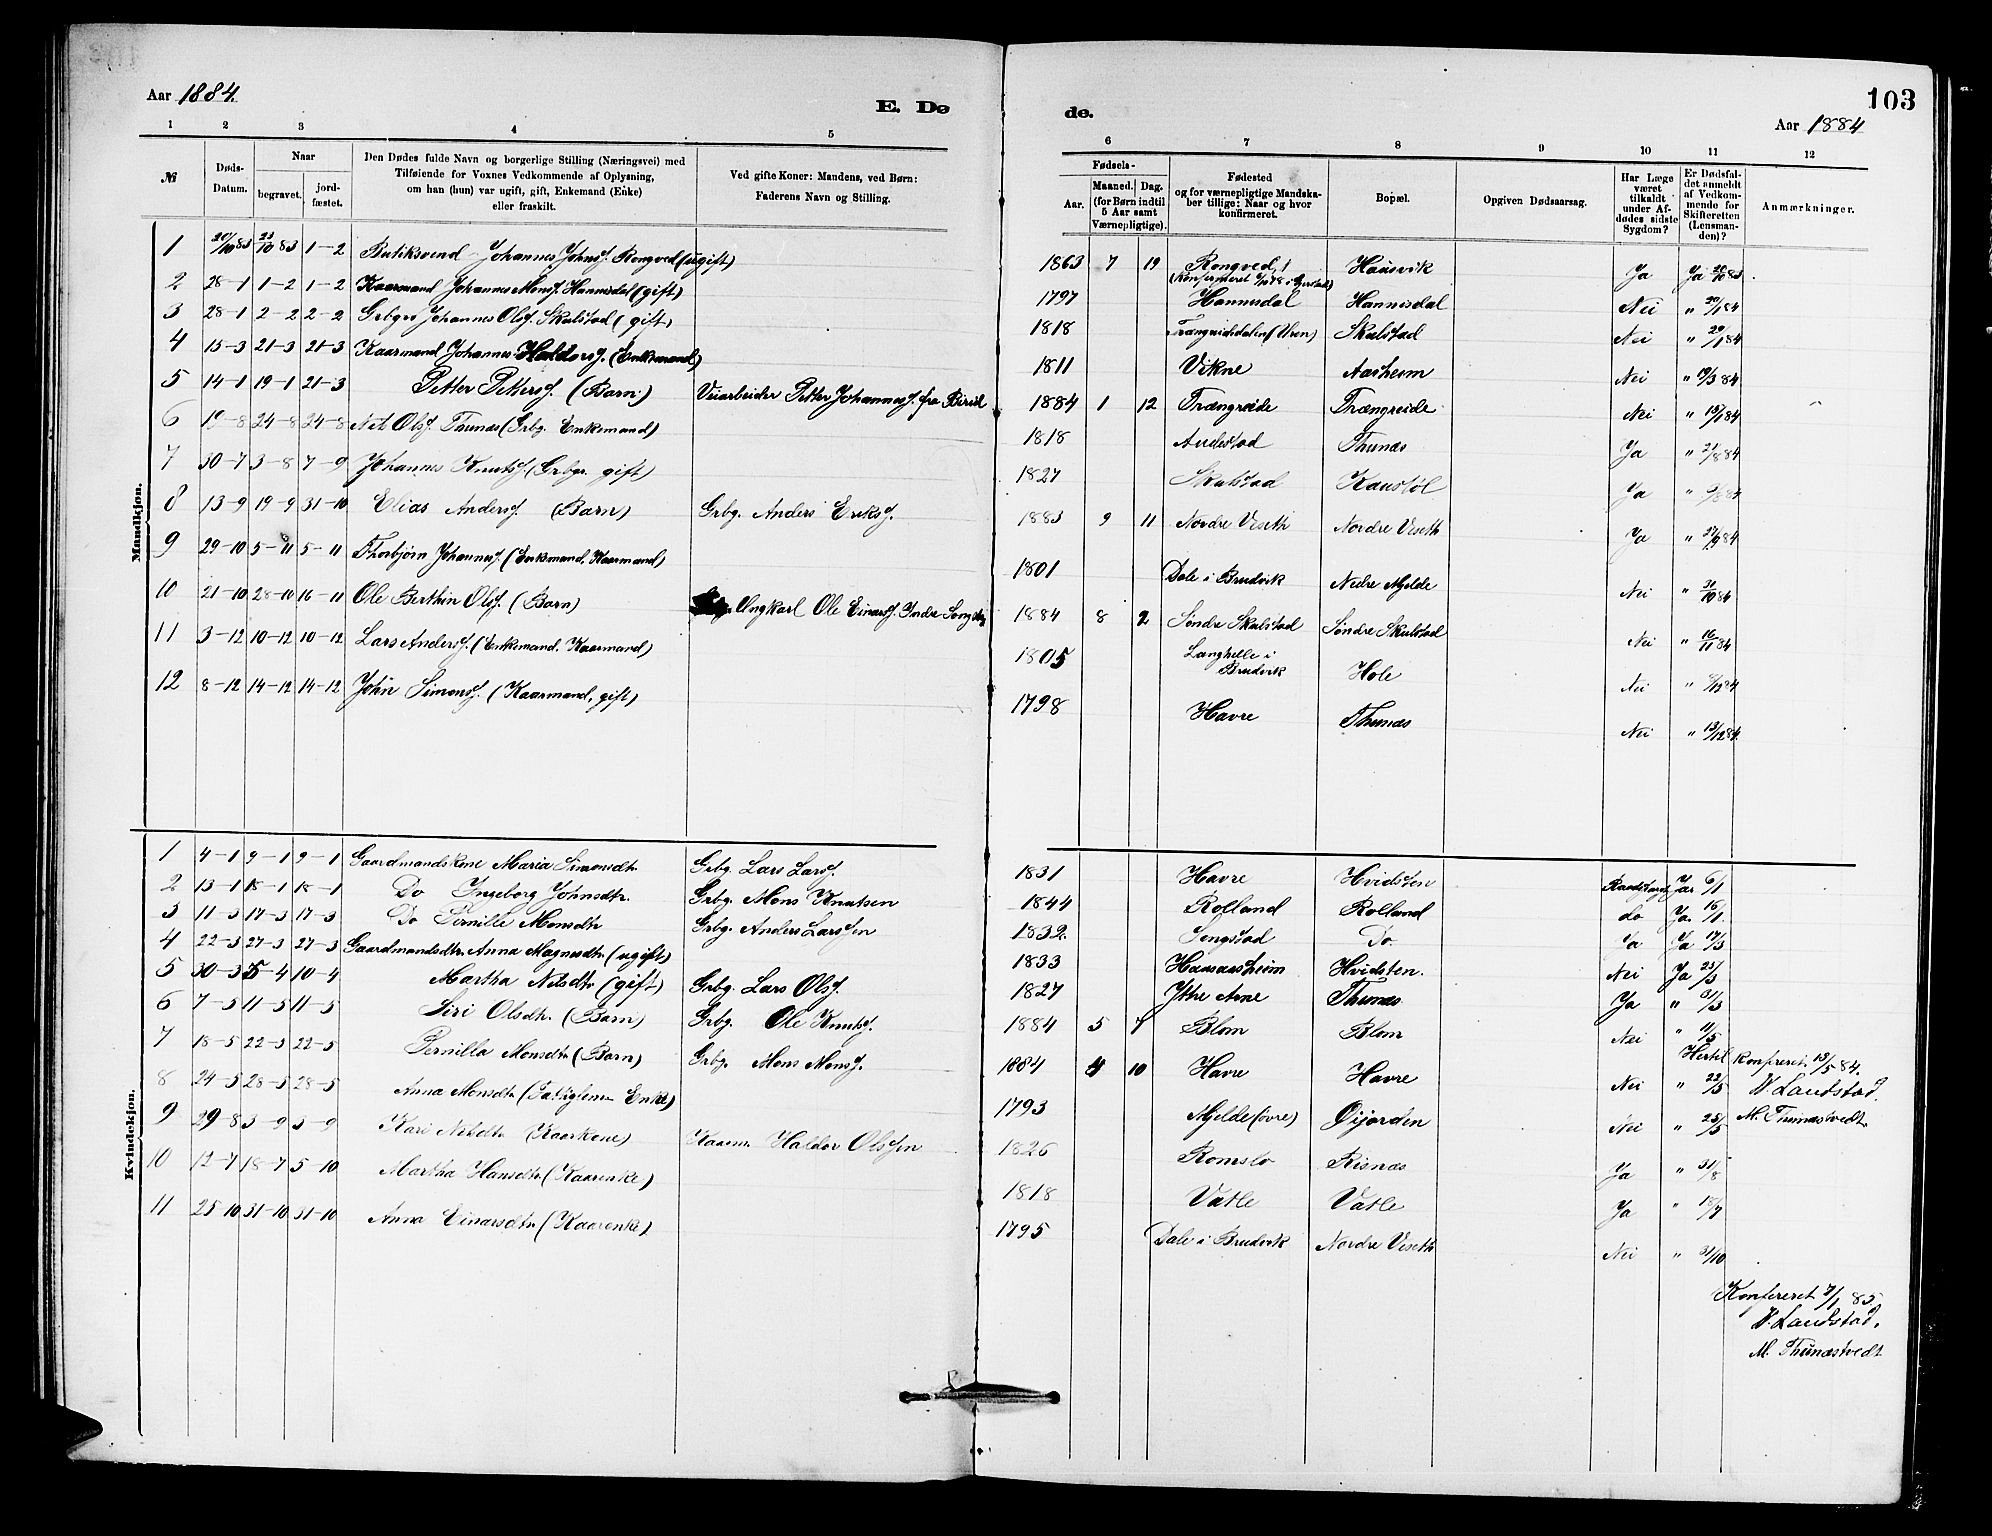 Aar 1884.
E. Dø
de.
103
Aar 1884
1 2 3 4 5
6 7 8 9 10 11 12
№
Døds-Datum.
Naar
begravet.
jord-fæstet.
Den Dødes fulde Navn og borgerlige Stilling (Næringsvei) med
Tilføiende for Voxnes Vedkommende af Oplysning,
om han (hun) var ugift, gift, Enkemand (Enke)
eller fraskilt.
Ved gifte Koner: Mandens, ved Børn:
Faderens Navn og Stilling.
Fødsels-
Aar.
Maaned. Dag.
(for Børn indtil
5 Aar samt
Værnepligtige).
Fødested
og for værnepligtige Mandska-
ber tillige: Naar og hvor
konfirmeret.
Bopæl.
Opgiven Dødsaarsag.
Har Læge
været
tilkaldt
under Af-
dødes sidste
Sygdom?
Er Dødsfal-
det anmeldt
af Vedkom-
mende for
Skifteretten
(Lensman-
den)?
Anmærkninger.
Mandkjøn.
1 20/10 83 23/10 83 1-2 Butiksvend Johannes Johnsf. Rongved (ugift) 1863 7 19 Rongved Hausvik Ja Ja 83
2 28-1 1-2 1-2 Kaarmand Johannes Monsf. Hannisdal (gift) 1797 Hannisdal Hannisdal Nei " 84
3 28-1 2-2 2-2 Grbgr Johannes Olsf. Skulstad (gift) 1818 Trængreiddalen (Uren) Skulstad Nei " 29/1 84
4 15-3 21-3 21-3 Kaarmand Johannes Haldorsf. (Enkemand) 1811 Vikne Aasheim Nei " 19/3 84
5 14-1 19-1 21-3 Petter Pettersf. (Barn) Veiarbeider Petter Johannesf. fra Birid 1884 1 12 Trængreide Trængreide Nei " 15/1 84
6 19-8 24-8 24-8 Nils Olsf. Thunæs (Grbg. Enkemand) 1818 Audestad Thunæs Ja " 21/8 84
7 30-7 3-8 7-9 Johannes Knutsf. (Grbgr gift) 1827 Skulstad Kaustøl Ja " /8 84
8 13-9 19-9 31-10 Elias Andersf. (Barn) Grbg. Anders Eriksf. 1883 9 11 Nordre Viseth Nordre Viseth Ja " /9 84
9 29-10 5-11 5-11 Thorbjørn Johannesf. (Enkemand, Kaarmand) 1801 Dale i Brudvik Nedre Mjelde Nei " 30/10 84
10 21-10 28-10 16-11 Ole Berthin Olsf. (Barn) Ungkarl Ole Einarsf. Indre 1884 8 2 Søndre Skulstad Søndre Skulstad Nei " 16/11 84
11 3-12 10-12 10-12 Lars Andersf. (Enkemand, Kaarmand) 1805 Langhelle i Brudvik Hole Nei " 8/12 84
12 8-12 14-12 14-12 John Simonsf. (Kaarmand, gift) 1798 Havre Thunæs Nei " 13/12 84.
Kvindekjøn.
1 4-1 9-1 9-1 Gaardmandskone Maria Simonsdtr. Grbg. Lars Larsf. 1831 Havre Hvidsten Ja 6/1
2 13-1 18-1 18-1 Do Ingeborg Johnsdtr. Grbg. Mons Knutsen 1844 Rolland Rolland do Ja 16/1
3 11-3 17-3 17-3 Do Pernille Monsdtr Grbg. Anders Larssen 1832. Do Ja Ja 17/3
4 22-3 27-3 27-3 Gaardmandsdtr. Anna Magnesdtr (ugift) 1833 Hvidsten. Nei Ja 25/3
5 30-3 5-4 10-4 Martha Nilsdtr (gift) Grbg. Lars Olsf. 1827 Ytre Arne Thunæs Ja " 31/3
6 7-5 11-5 11-5 Siri Olsdtr. (Barn) Grbg. Ole Knutsf. 1884 5 7 Blom Blom Nei " 11/5
Hertil konfereret 15/5 84.
7 18-5 22-5 22-5 Pernilla Monsdtr (Barn) Grbg. Mons Monsf. 1884 4 10 Havre Havre Nei " 22/5 V. Landstad.
8 24-5 28-5 28-5 Anna Monsdtr (Fattiglem Enke) 1793 Mjelde (øvre) Øijorden Nei " 25/5 M. Thunæstvedt.
9 29-8 3-9 3-9 Kari Nilsdtr (Kaarkone) Kaarm. Haldor Olssen 1826 Romslo Risnæs Ja " 31/8
10 12-7 18-7 5-10 Martha Hansdtr (Kaarenke) 1818 Vatle Vatle Ja " 18/7
11 25-10 31-10 31-10 Anna Einarsdtr (Kaarenke) 1795 Dale i Brudvik Nordre Viseth Nei " 31/10
Konfereret 7/1 85
V. Landstad.
M. Thunæstvedt